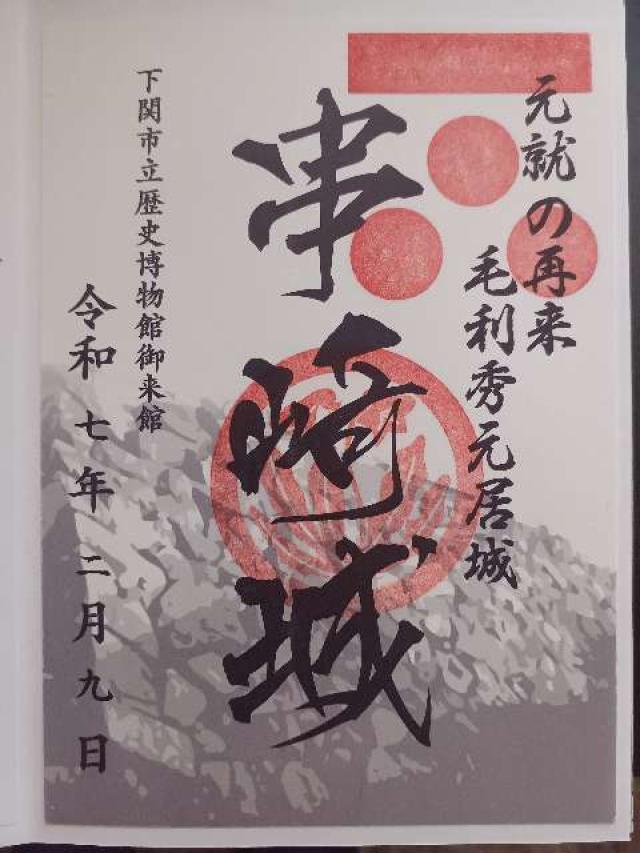 元就の再来
毛利秀元居城
串崎城
下関市立歴史博物館御来館
令和七年二月九日